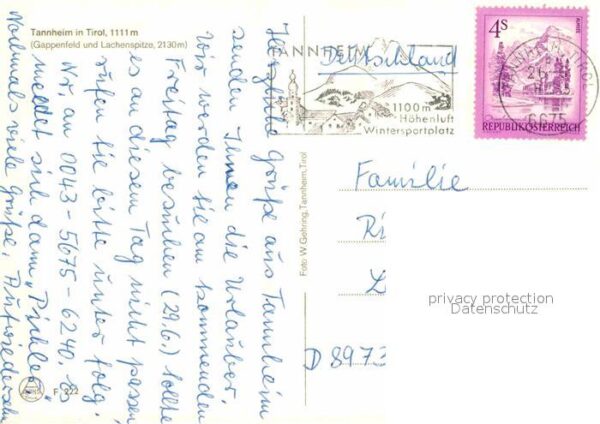 Tannheim in Tirol, 1111 m
(Gappenfeld und Lachenspitze, 2130m)
Herzliche Grüße aus Tannheim
senden Ihnen die Urlauber.
Wir werden Sie am kommenden
Freitag besuchen (29.6.) sollte
es an diesem Tag nicht passen
rufen Sie bitte unter folg.
Nr. an 0043-5675-6240. Es
meldet sich dann "Pichler"
Nochmals viele Grüße, Aufwiedersehn
F 222
Foto W Gehring, Tannheim, Tirol
TANNHEIM
1100 m
Höhenluft
Wintersportplatz
Deutschland
4S
ALMSEE
REPUBLIK ÖSTERREICH
TANNHEIM, TIROL
6675
Familie
Ri
L
D 8973
privacy protection
Datenschutz